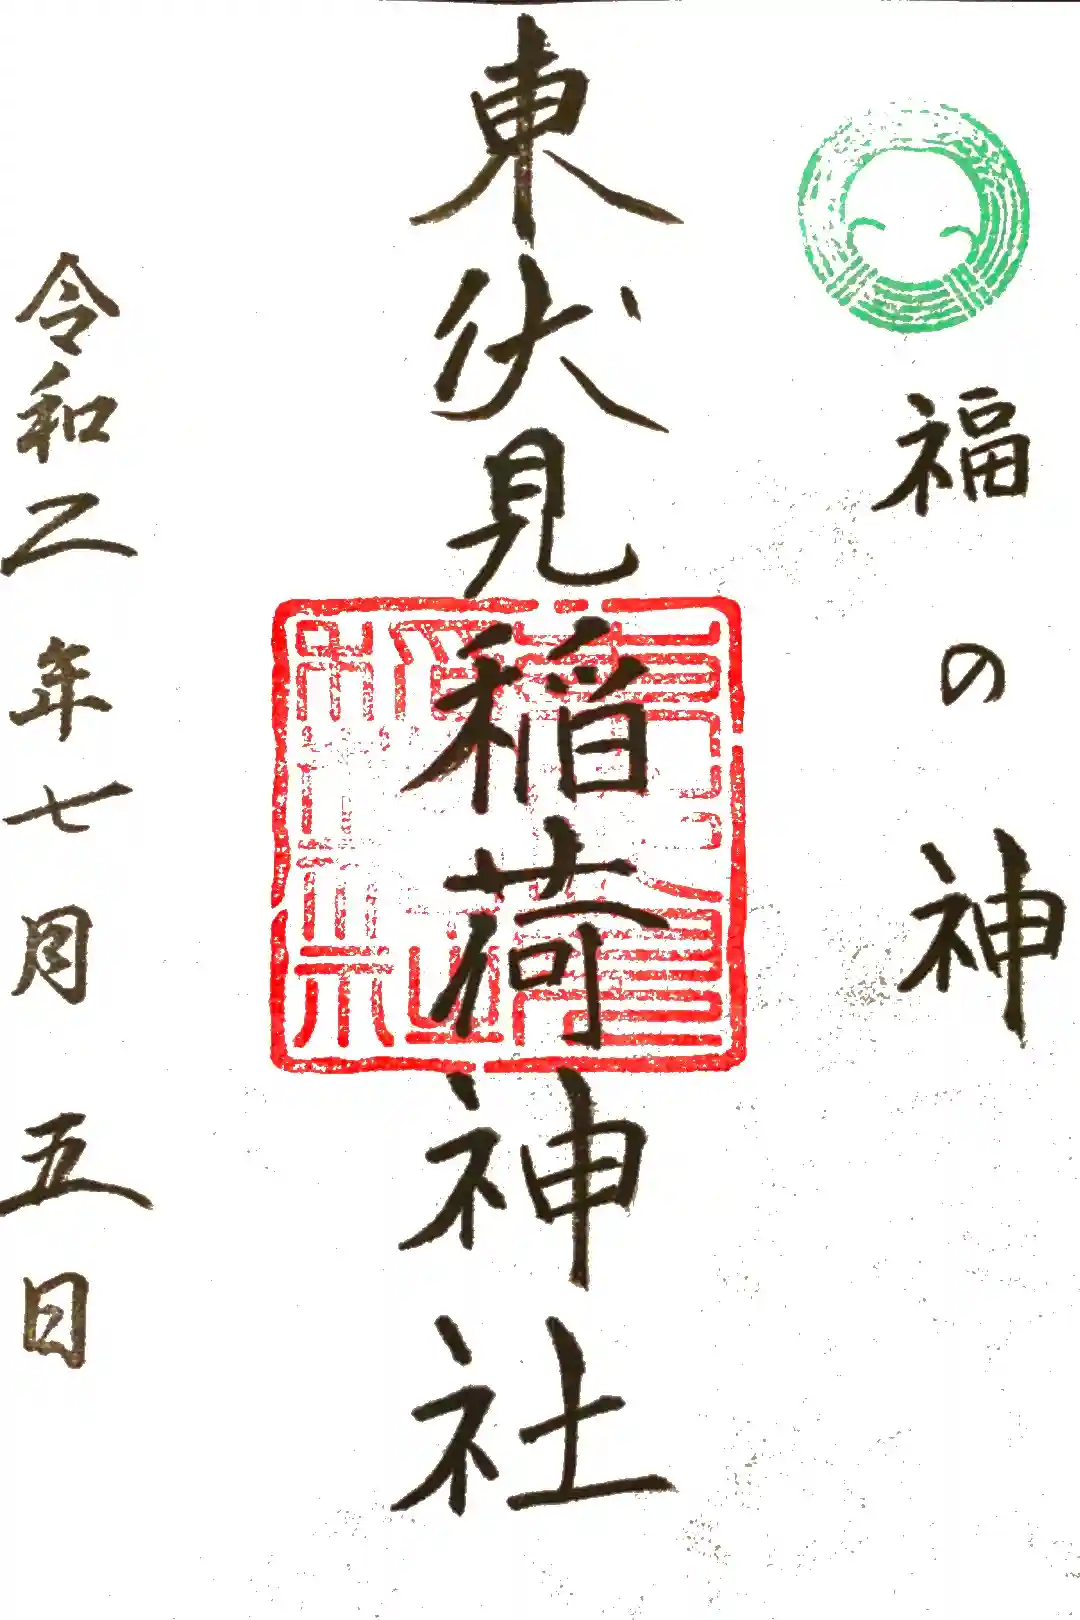 福の神
東伏見稲荷神社
令和二年七月五日